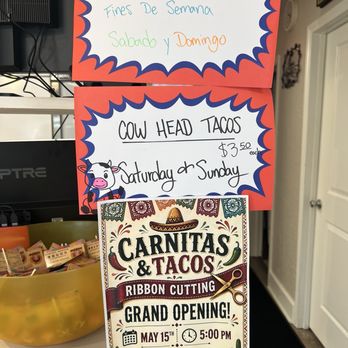 Fines De Semana
Sabado y Domingo
COW HEAD TACOS
$3.50 each
Saturday & Sunday
PTRE
CARNITAS
& TACOS
RIBBON CUTTING
GRAND OPENING!
MAY 15th
5:00 PM